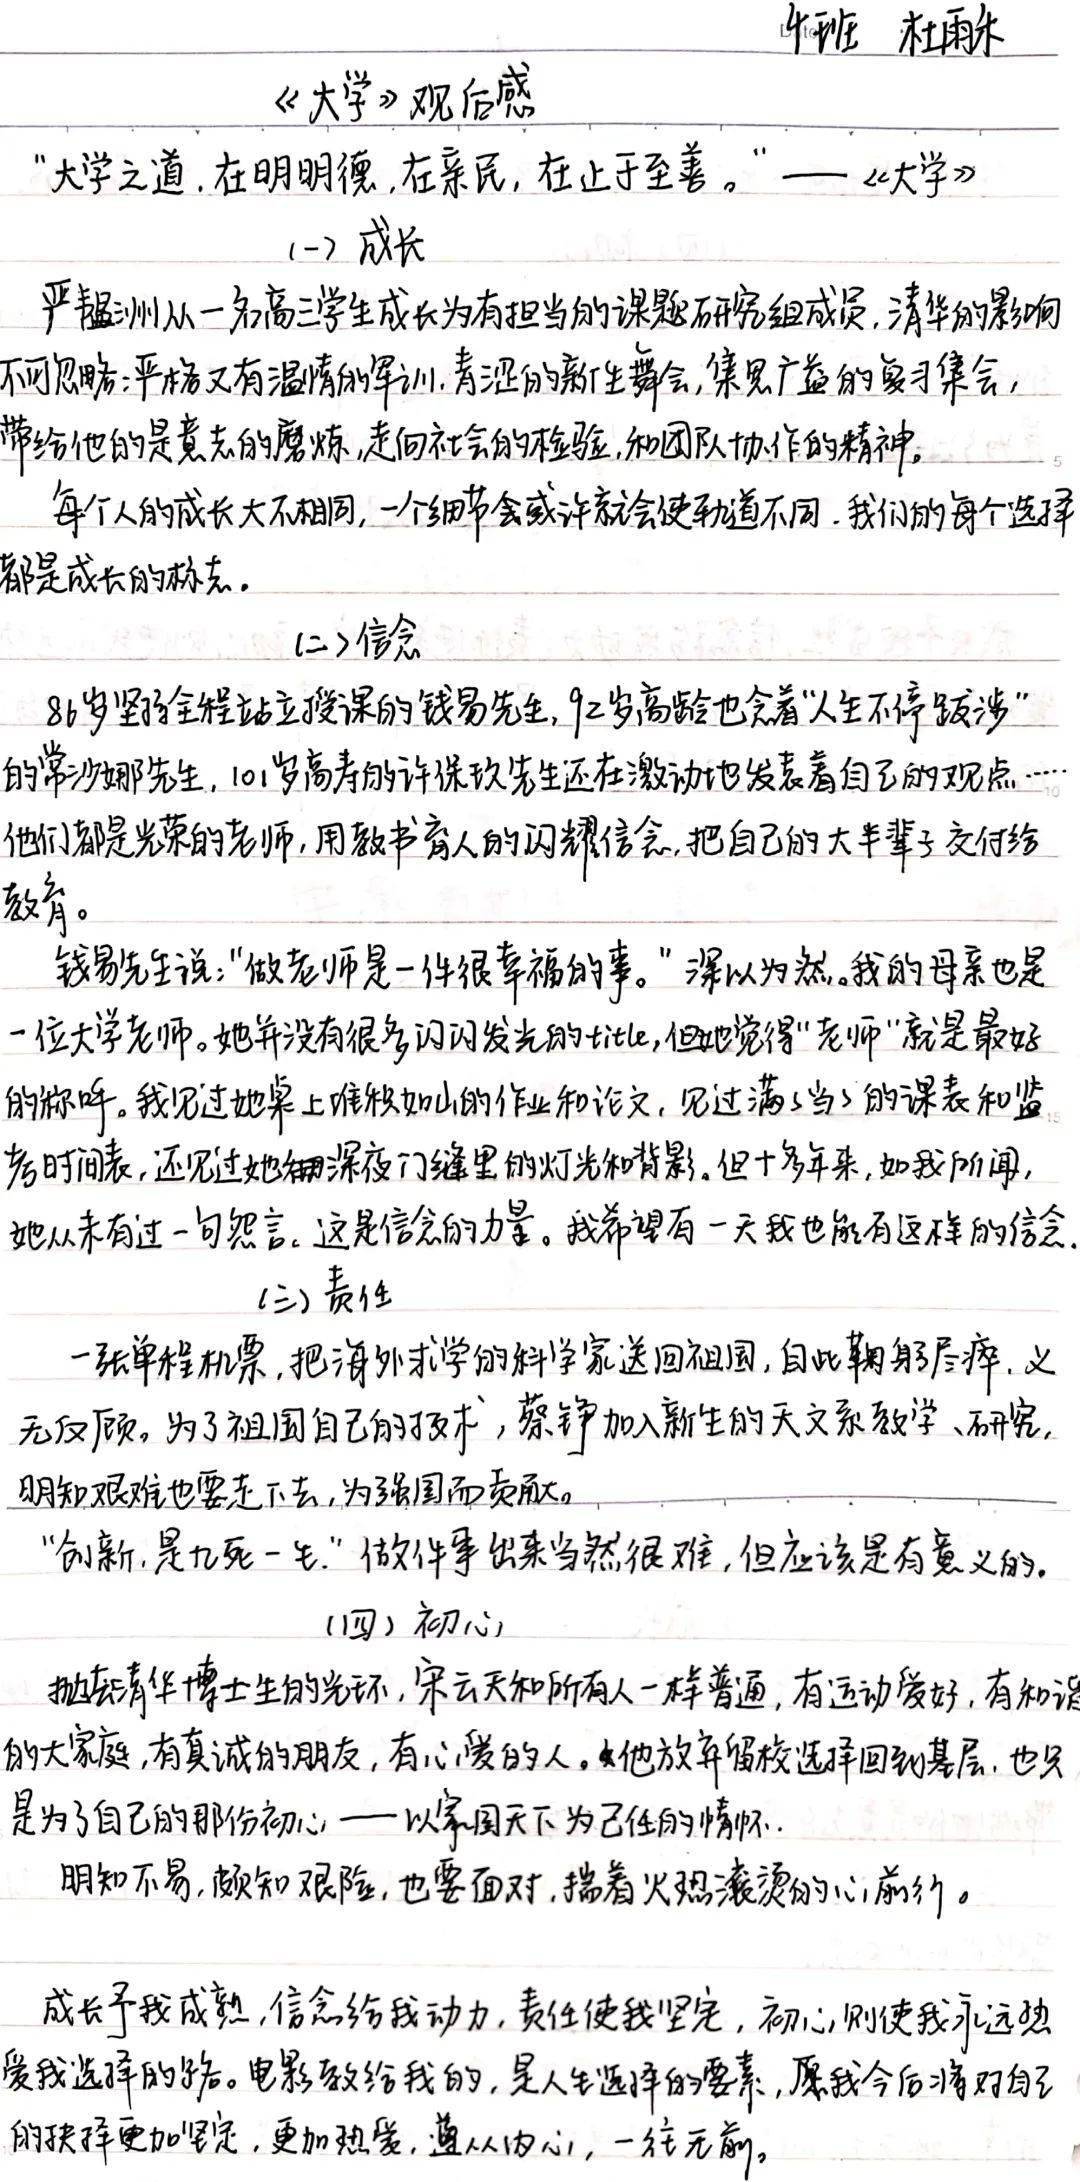 班 杜雨
《大学》观后感
"大学之道，在明明德，在亲民，在止于至善。" —— 《大学》
(一) 成长
严韫洲从一名高三学生成长为有担当的课题研究组成员，清华的影响
不可忽略：严格又有温情的军训，青涩的新生舞会，集思广益的复习集会，
带给他的是意志的磨炼，走向社会的检验，和团队协作的精神。
每个人的成长大不相同，一个细节或许就会使轨道不同．我们的每个选择
都是成长的标志。
(二) 信念
86岁坚持全程站立授课的钱易先生，92岁高龄也念着"人生不停跋涉"
的常沙娜先生，101岁高寿的许保玖先生还在激动地发表着自己的观点……
他们都是光荣的老师，用教书育人的闪耀信念，把自己的大半辈子交付给
教育。
钱易先生说："做老师是一件很幸福的事。"深以为然。我的母亲也是
一位大学老师。她并没有很多闪闪发光的title，但她觉得"老师"就是最好
的称呼。我见过她桌上堆积如山的作业和论文，见过满满当当的课表和监
考时间表，还见过她深夜门缝里的灯光和背影。但十多年来，如我所闻，
她从未有过一句怨言。这是信念的力量。我希望有一天我也能有这样的信念．
(三) 责任
一张单程机票，把海外求学的科学家送回祖国，自此鞠躬尽瘁，义
无反顾。为了祖国自己的技术，蔡铮加入新生的天文系教学、研究，
明知艰难也要走下去，为强国而贡献。
"创新，是九死一生．"做件事出来当然很难，但应该是有意义的。
(四) 初心
抛去清华博士生的光环，宋云天和所有人一样普通，有运动爱好，有和谐
的大家庭，有真诚的朋友，有心爱的人。他放弃留校选择回到基层，也只
是为了自己的那份初心——以家国天下为己任的情怀．
明知不易，颇知艰险，也要面对，揣着火热滚烫的心前行。
成长予我成熟，信念给我动力，责任使我坚定，初心则使我永远热
爱我选择的路。电影教给我的，是人生选择的要素，愿我今后将对自己
的抉择更加坚定，更加热爱，遵从内心，一往无前。